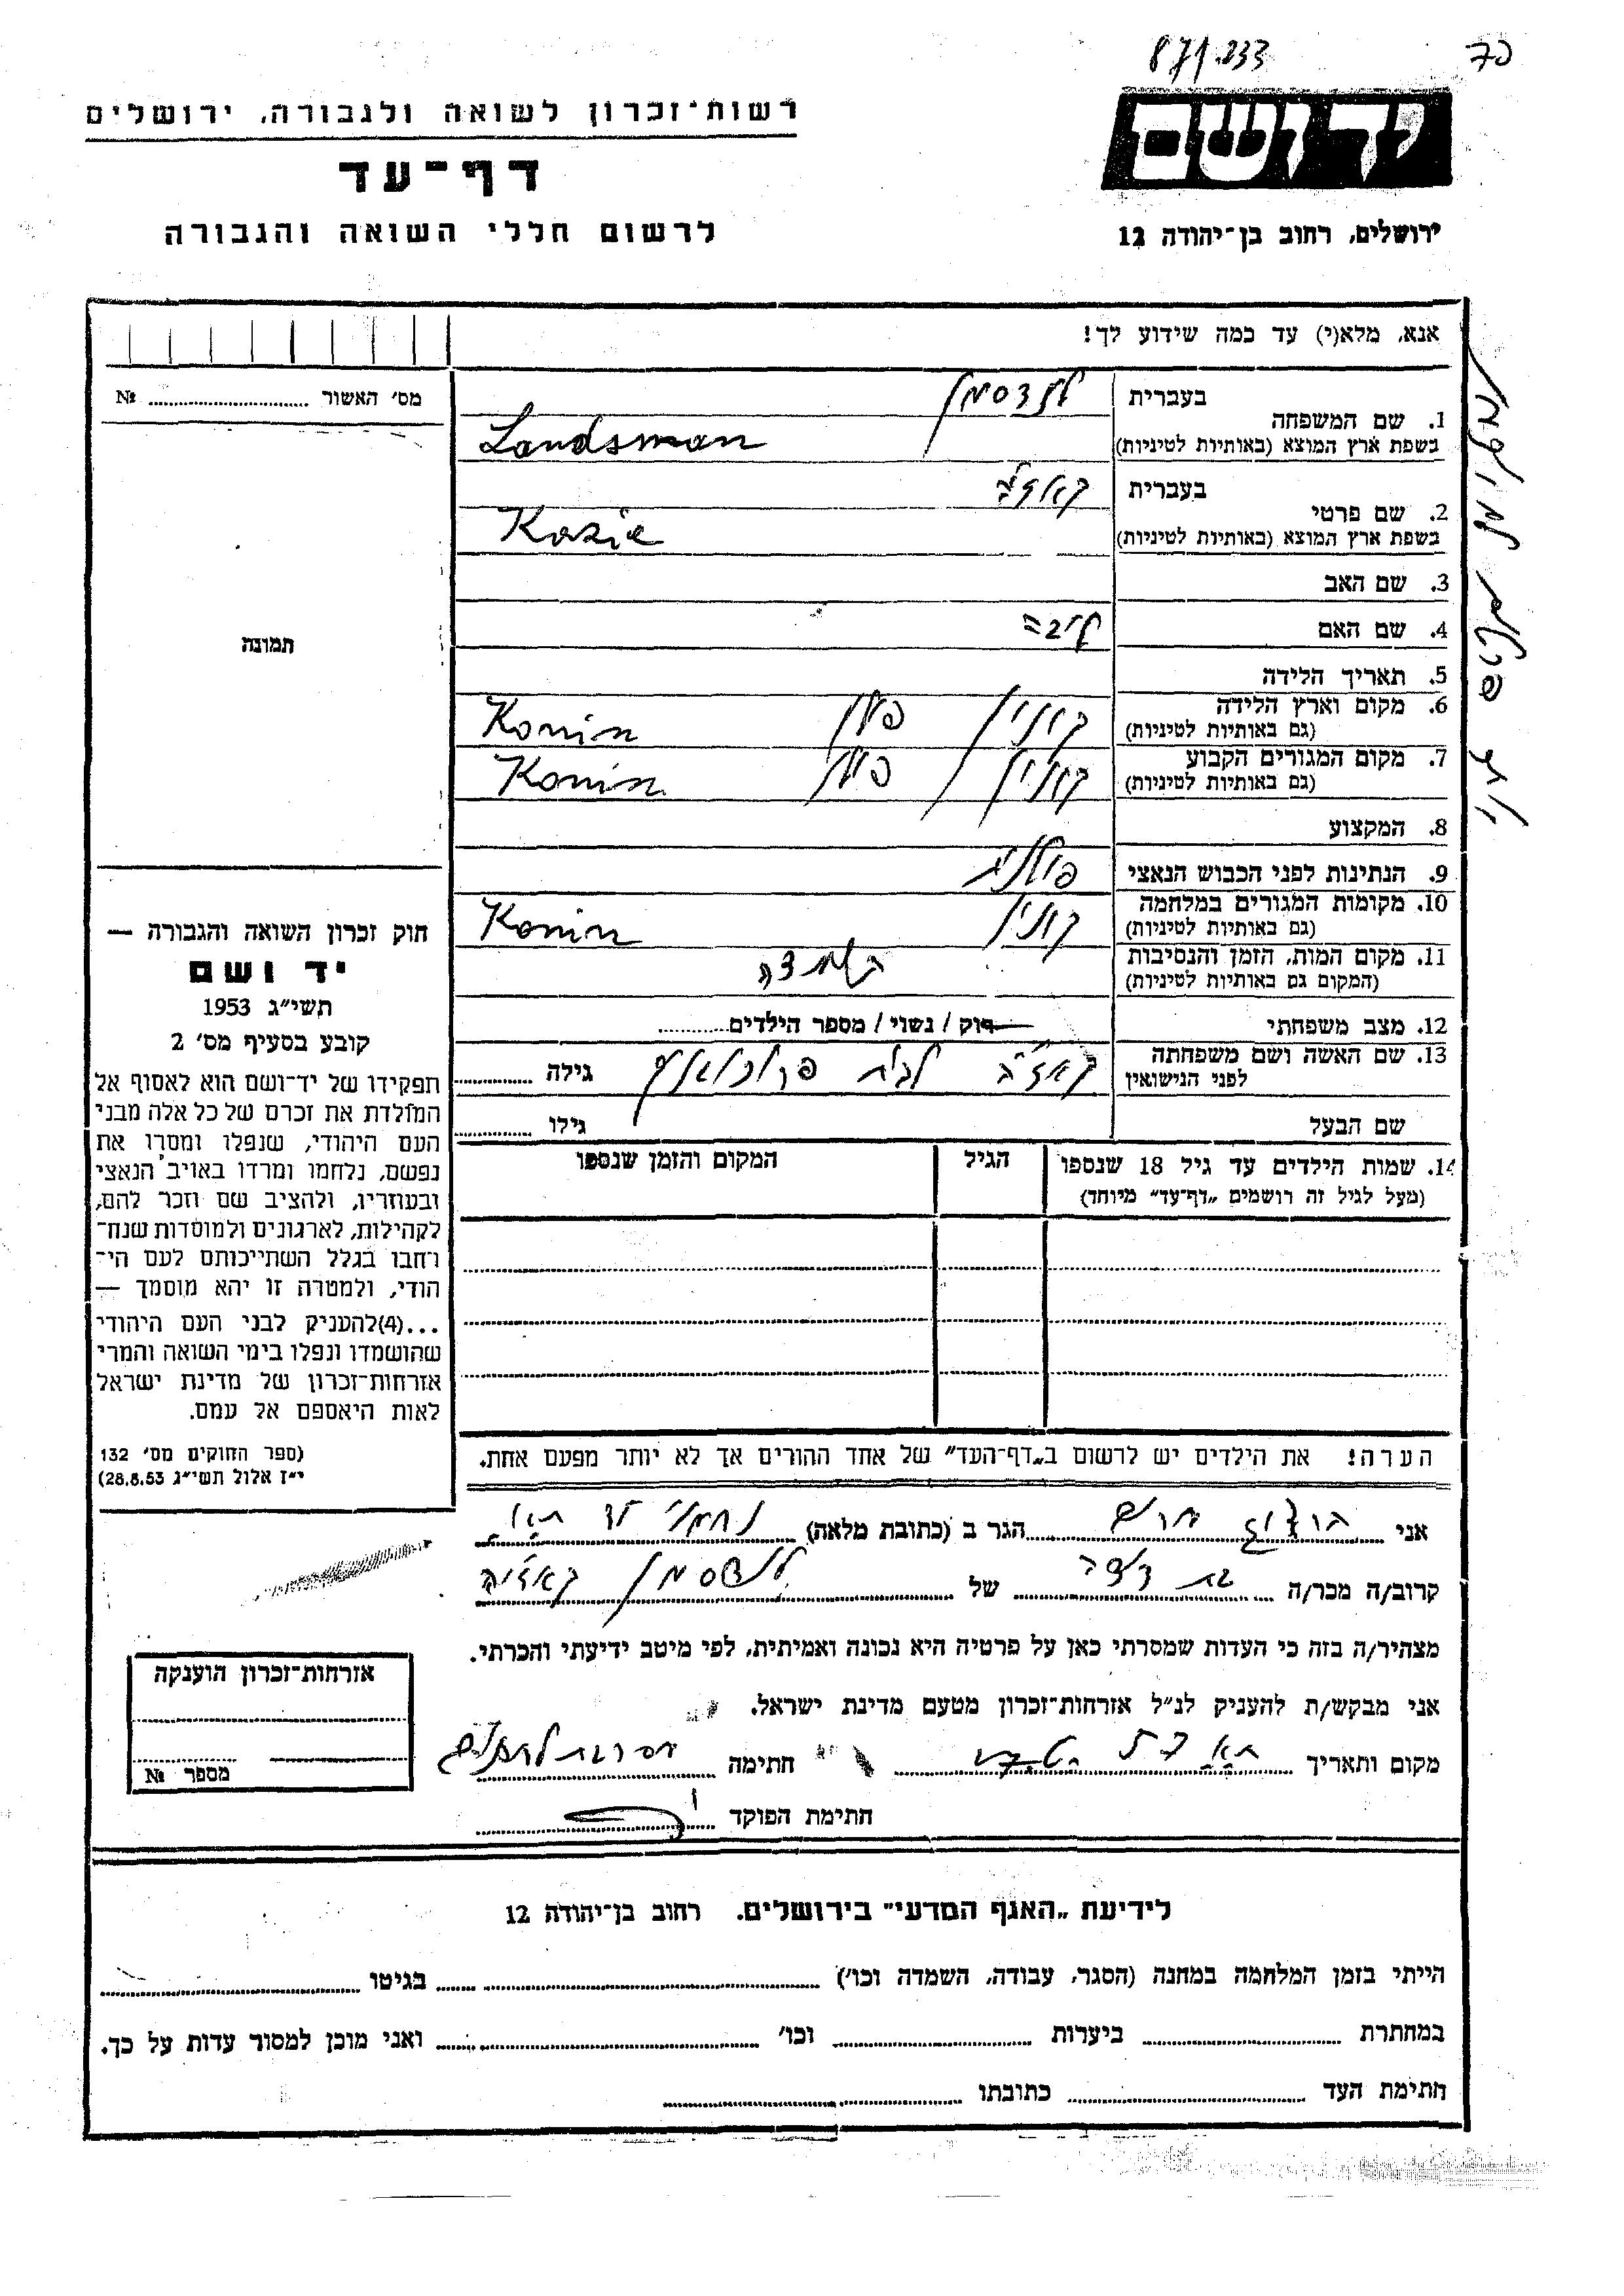 871.233
יד ושם
רשות־זכרון לשואה ולגבורה, ירושלים
דף־עד
לרשום חללי השואה והגבורה
ירושלים, רחוב בן־יהודה 12
אנא, מלא(י) עד כמה שידוע לך!
מס׳ האשור № 
1. שם המשפחה
בעברית לנדסמן
בשפת ארץ המוצא (באותיות לטיניות) Landsman
2. שם פרטי
בעברית
בשפת ארץ המוצא (באותיות לטיניות) Kazie
3. שם האב
4. שם האם ליבה
5. תאריך הלידה
6. מקום וארץ הלידה
(גם באותיות לטיניות) קונין פולין Konin
7. מקום המגורים הקבוע
(גם באותיות לטיניות) קונין פולין Konin
8. המקצוע
9. הנתינות לפני הכבוש הנאצי פולנית
10. מקומות המגורים במלחמה
(גם באותיות לטיניות) קונין Konin
11. מקום המות, הזמן והנסיבות
(המקום גם באותיות לטיניות) השמדה
12. מצב משפחתי רוק / נשוי / מספר הילדים
13. שם האשה ושם משפחתה
לפני הנישואין לבית גילה
שם הבעל גילו
14. שמות הילדים עד גיל 18 שנספו
(מעל לגיל זה רושמים „דף־עד" מיוחד)
הגיל
המקום והזמן שנספו
הערה! את הילדים יש לרשום ב„דף־העד" של אחד ההורים אך לא יותר מפעם אחת.
תמונה
חוק זכרון השואה והגבורה —
יד ושם
תשי״ג 1953
קובע בסעיף מס׳ 2
תפקידו של יד־ושם הוא לאסוף אל
המולדת את זכרם של כל אלה מבני
העם היהודי, שנפלו ומסרו את
נפשם, נלחמו ומרדו באויב הנאצי
ובעוזריו, ולהציב שם וזכר להם,
לקהילות, לארגונים ולמוסדות שנח־
רחבו בגלל השתייכותם לעם הי־
הודי, ולמטרה זו יהא מוסמך —
...(4)להעניק לבני העם היהודי
שהושמדו ונפלו בימי השואה והמרי
אזרחות־זכרון של מדינת ישראל
לאות היאספם אל עמם.
(ספר החוקים מס׳ 132
י״ז אלול תשי״ג 28.8.53)
אני הגר ב (כתובת מלאה)
קרוב/ה מכר/ה בת דודה של לנדסמן
מצהיר/ה בזה כי העדות שמסרתי כאן על פרטיה היא נכונה ואמיתית, לפי מיטב ידיעתי והכרתי.
אני מבקש/ת להעניק לנ״ל אזרחות־זכרון מטעם מדינת ישראל.
מקום ותאריך חתימה
חתימת הפוקד
אזרחות־זכרון הוענקה
מספר №
לידיעת „האגף המדעי" בירושלים, רחוב בן־יהודה 12
הייתי בזמן המלחמה במחנה (הסגר, עבודה, השמדה וכו׳) בגיטו
במחתרת ביערות וכו׳ ואני מוכן למסור עדות על כך.
חתימת העד כתובתו